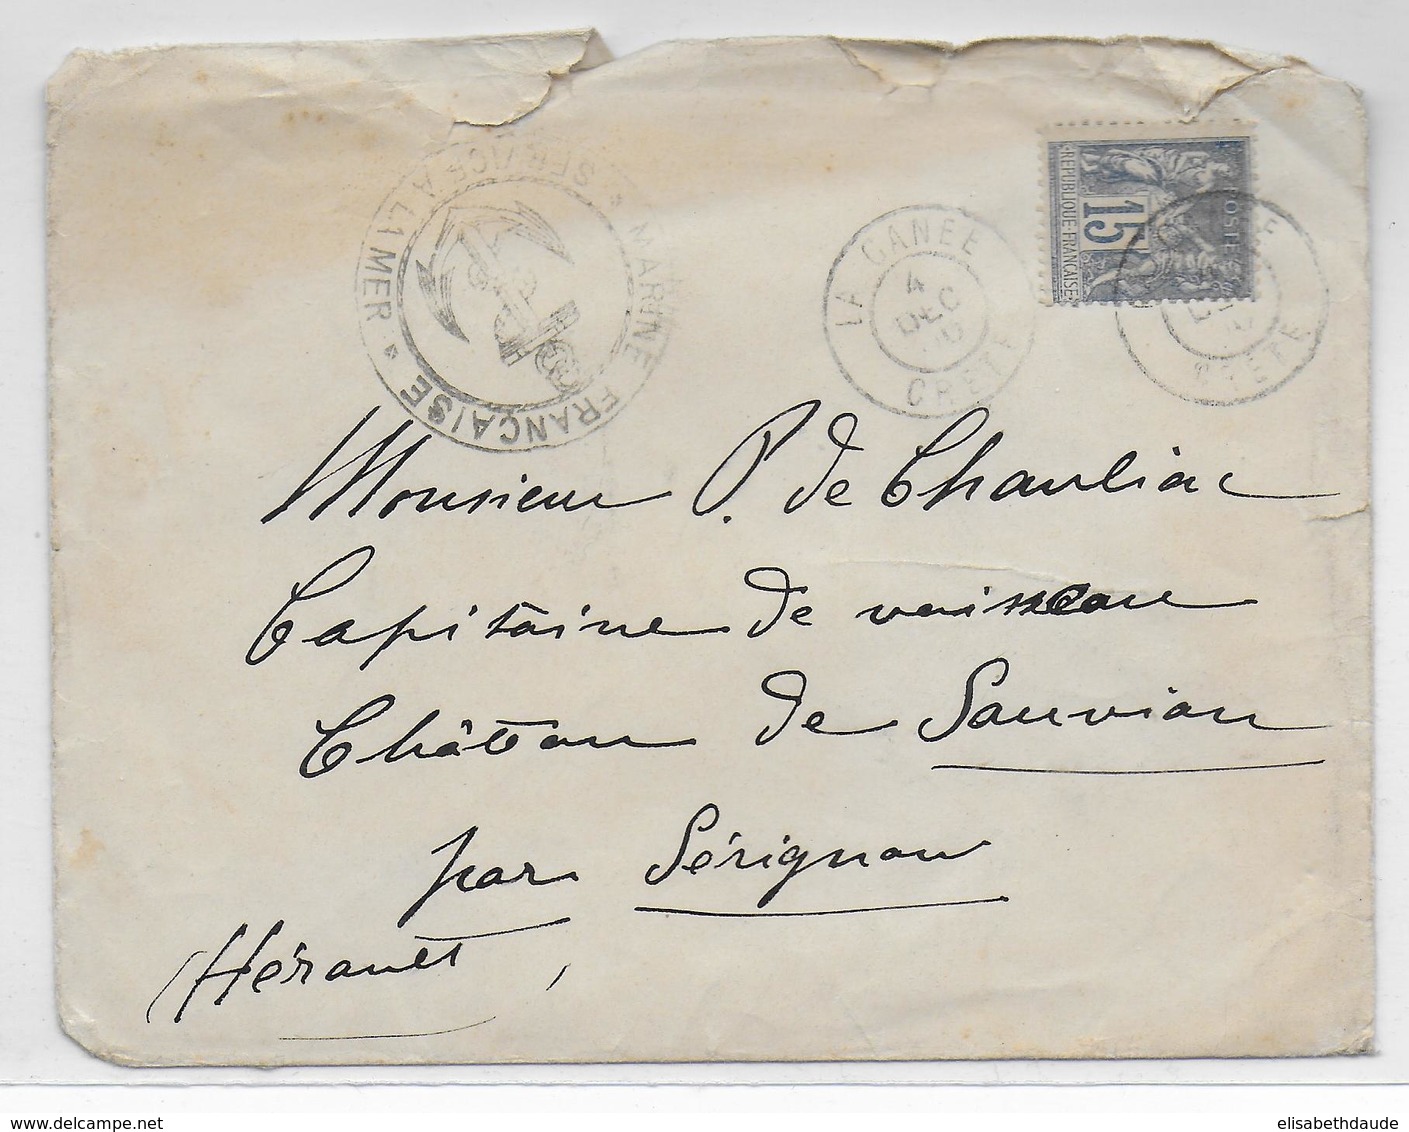 MARINE FRANÇAISE * SERVICE A LA MER *
LA CANÉE
4
DEC
CRETE
REPUBLIQUE FRANÇAISE
15
POSTE
CRETE
Monsieur P. de Chauliac
Capitaine de vaisseau
Château de Sauvian
par Sérignan
Hérault
www.delcampe.net
elisabethdaude